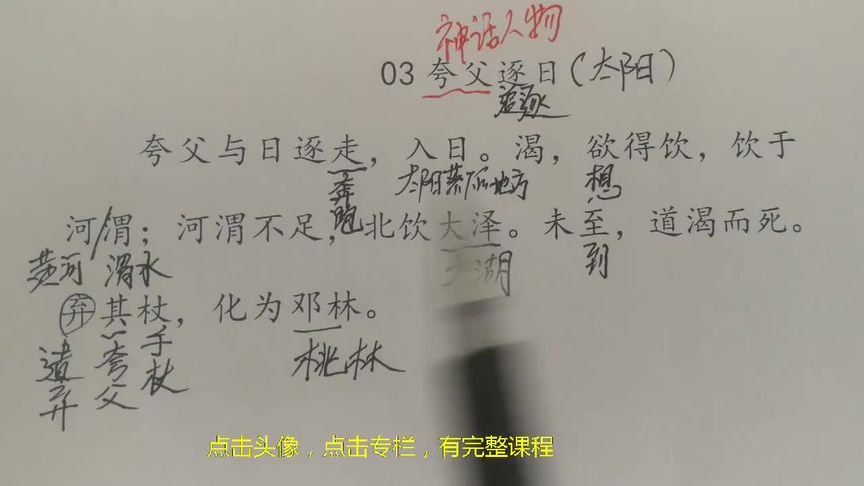 神话人物
03 夸父逐日(太阳)
追逐
夸父与日逐走，入日。渴，欲得饮，饮于
奔跑 太阳落下的地方 想
河/渭；河渭不足，北饮大泽。未至，道渴而死。
黄河 渭水 大湖 到
弃其杖，化为邓林。
遗弃 夸父 手杖 桃林
点击头像，点击专栏，有完整课程